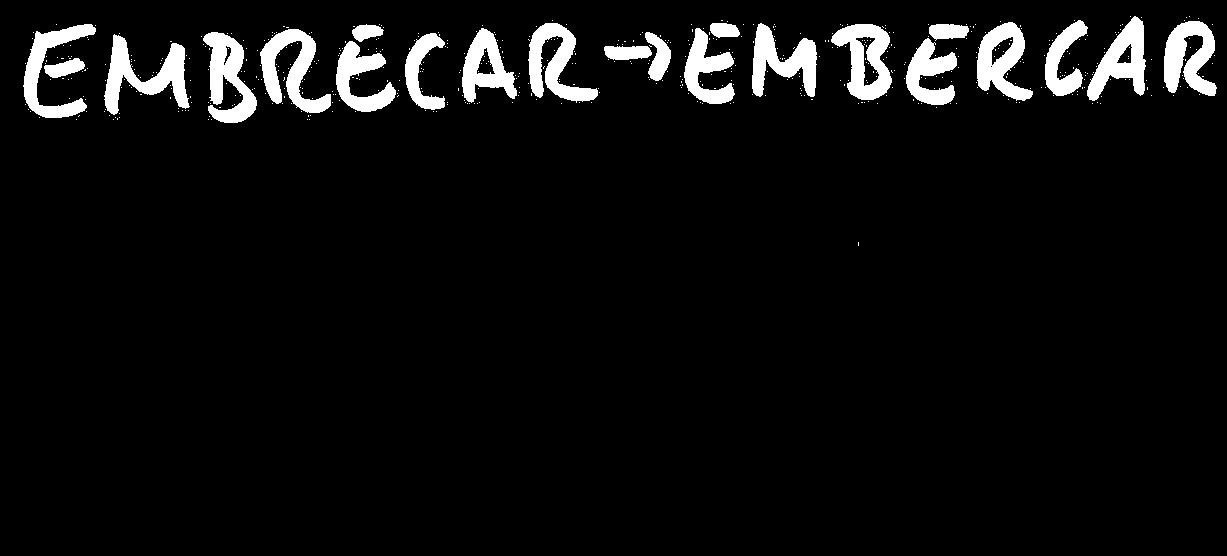 EMBRECAR→EMBERCAR